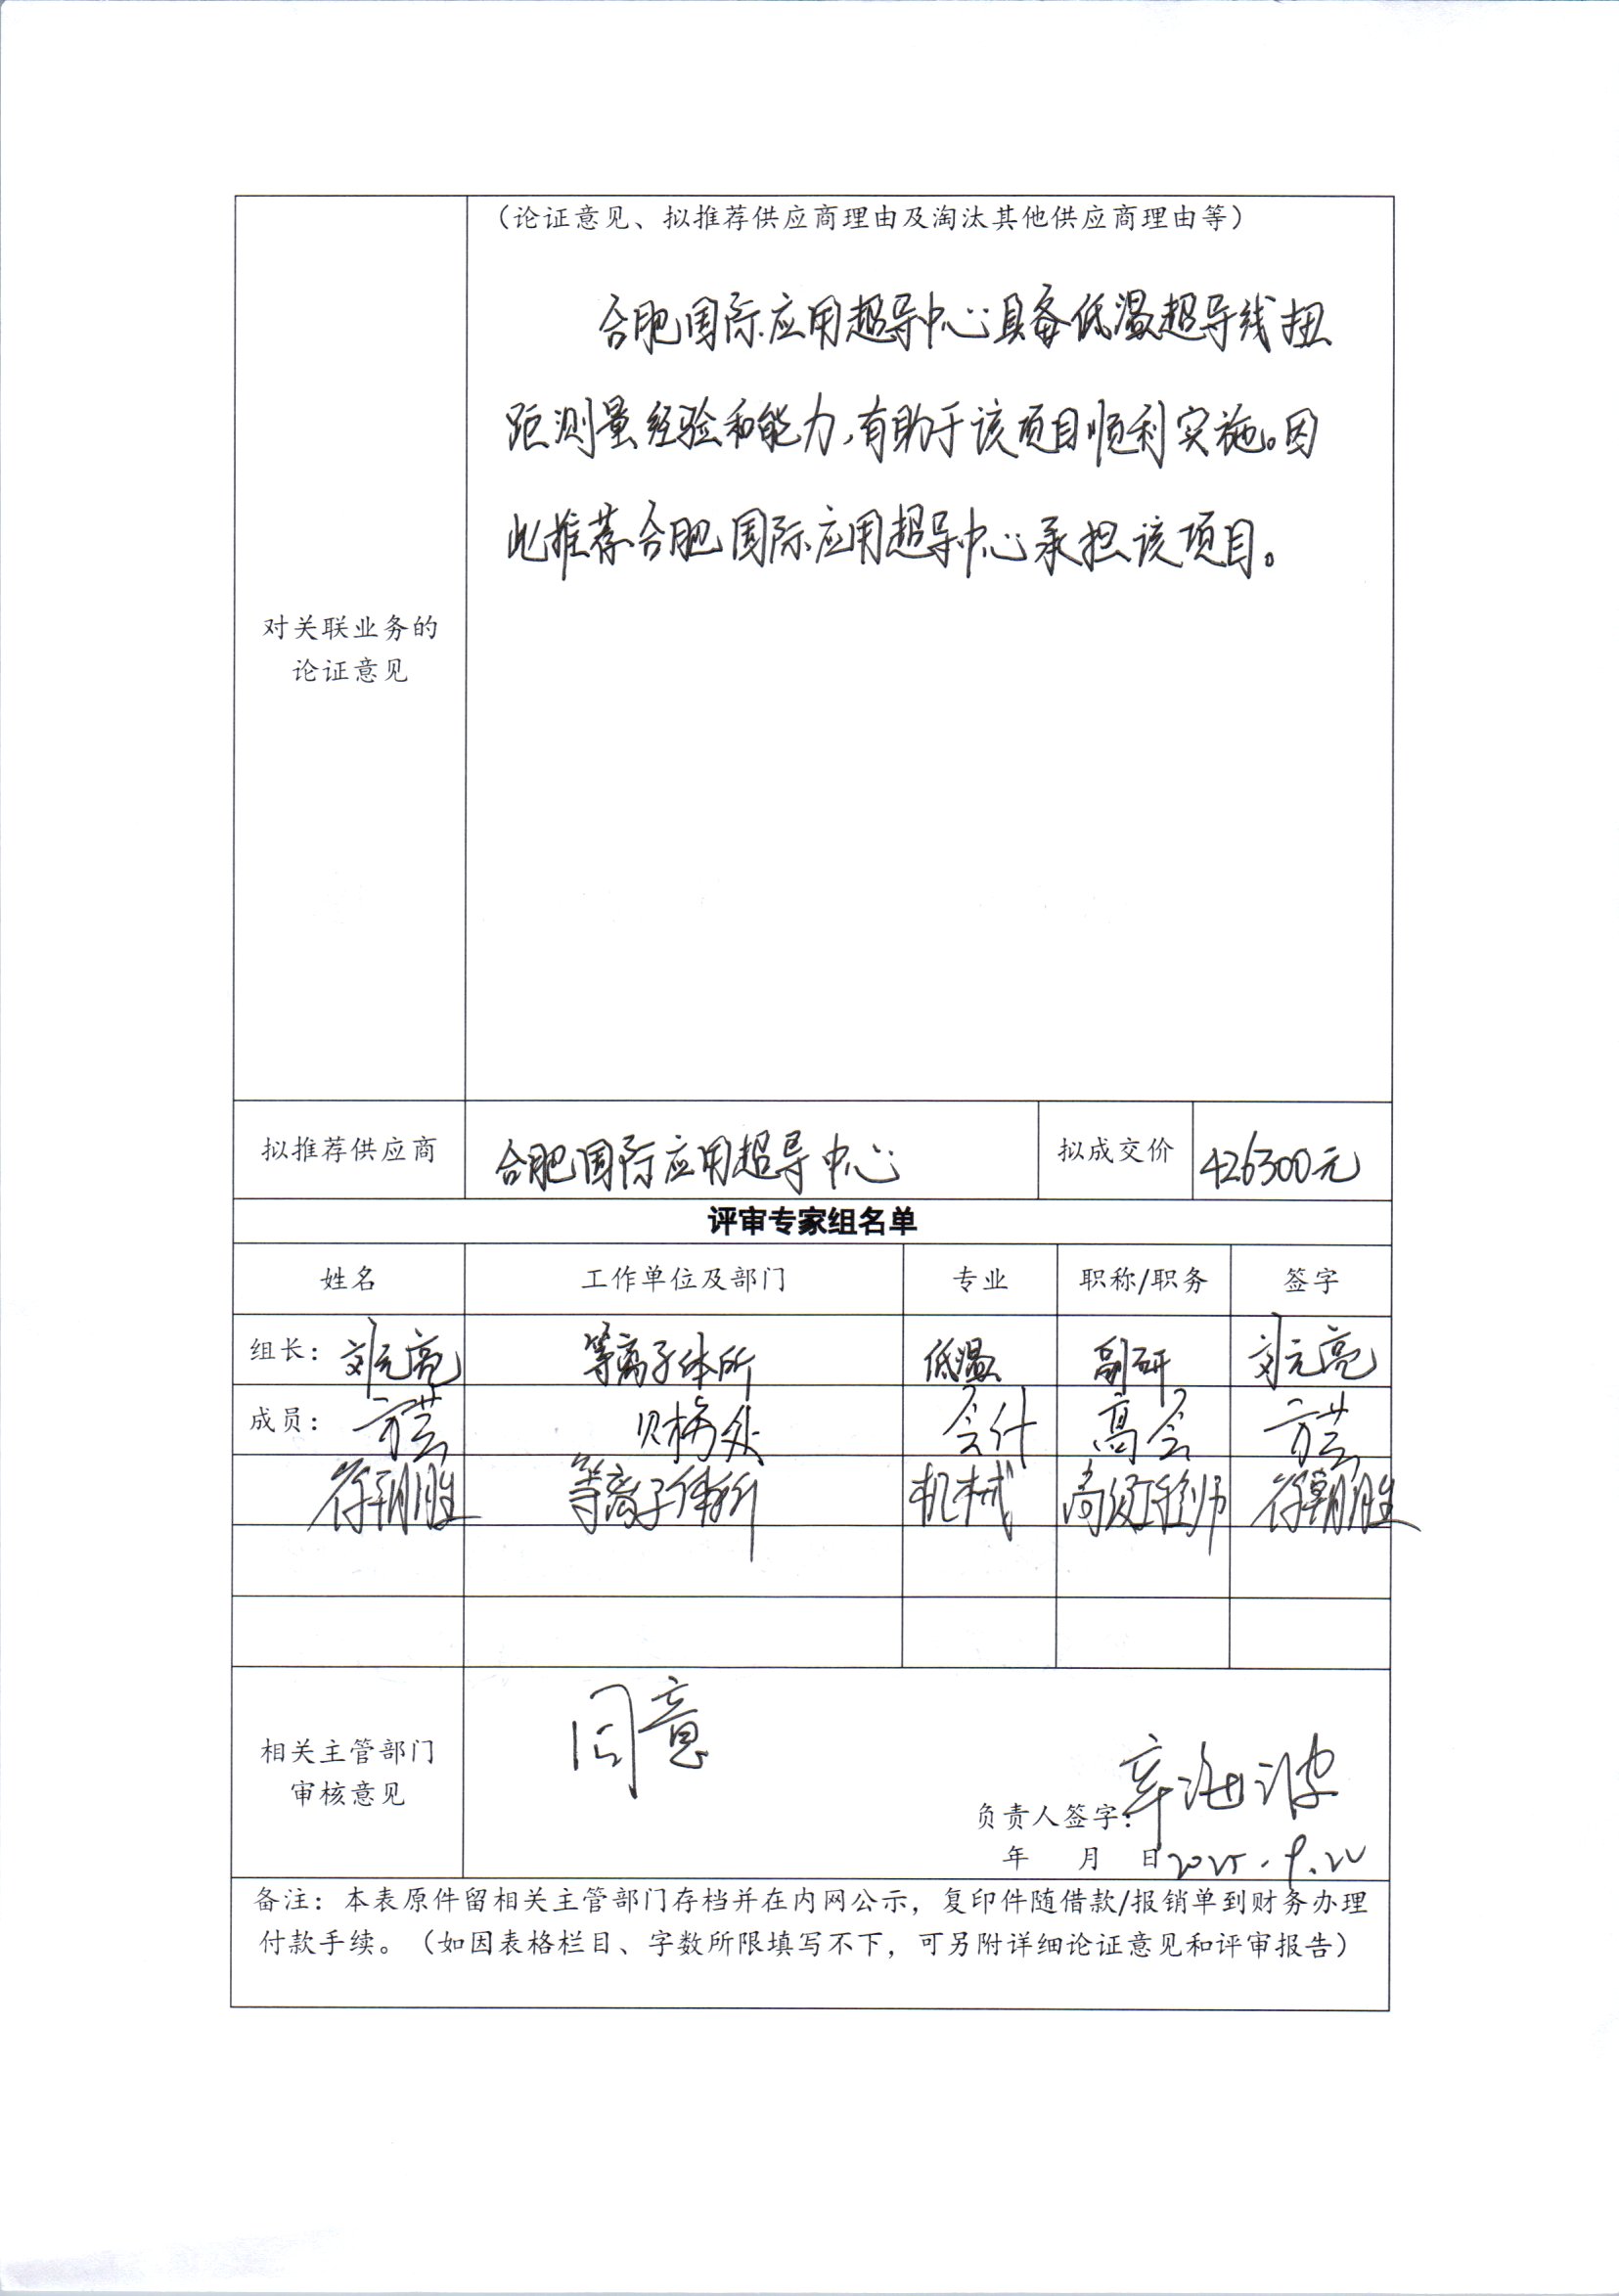 （论证意见、拟推荐供应商理由及淘汰其他供应商理由等）
合肥国际应用超导中心具备低温超导线扭
距测量经验和能力,有助于该项目顺利实施。因
此推荐合肥国际应用超导中心承担该项目。
对关联业务的
论证意见
拟推荐供应商 合肥国际应用超导中心 拟成交价 426300元
评审专家组名单
姓名 工作单位及部门 专业 职称/职务 签字
组长：刘元亮 等离子体所 低温 副研 刘元亮
成员：方芸 财务处 会计 高会 方芸
符朝胜 等离子体所 机械 高级工程师 符朝胜
相关主管部门
审核意见
同意
负责人签字：辛海波
年 月 日 2025.9.22
备注：本表原件留相关主管部门存档并在内网公示，复印件随借款/报销单到财务办理
付款手续。（如因表格栏目、字数所限填写不下，可另附详细论证意见和评审报告）